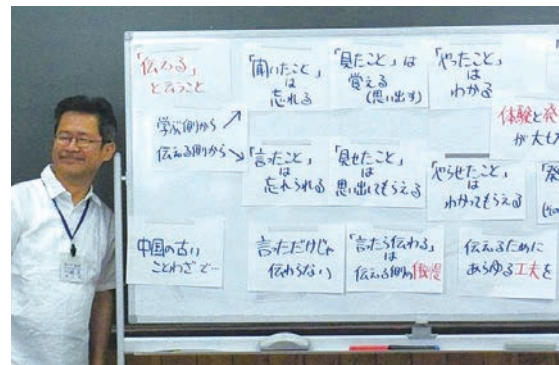 「伝わる」
と云うこと
学ぶ側から
伝える側から
「聞いたこと」
は
忘れる
「見たこと」は
覚える
(思い出す)
「やったこと」
は
わかる
体験と発
が大せ
「言ったこと」
は
忘れられる
「見せたこと」
は
思い出してもらえる
「やらせたこと」
は
わかってもらえる
中国の古い
ことわざで…
言っただけじゃ
伝わらない
「言ったら伝わる」
は
伝える側の傲慢
伝えるために
あらゆる工夫を